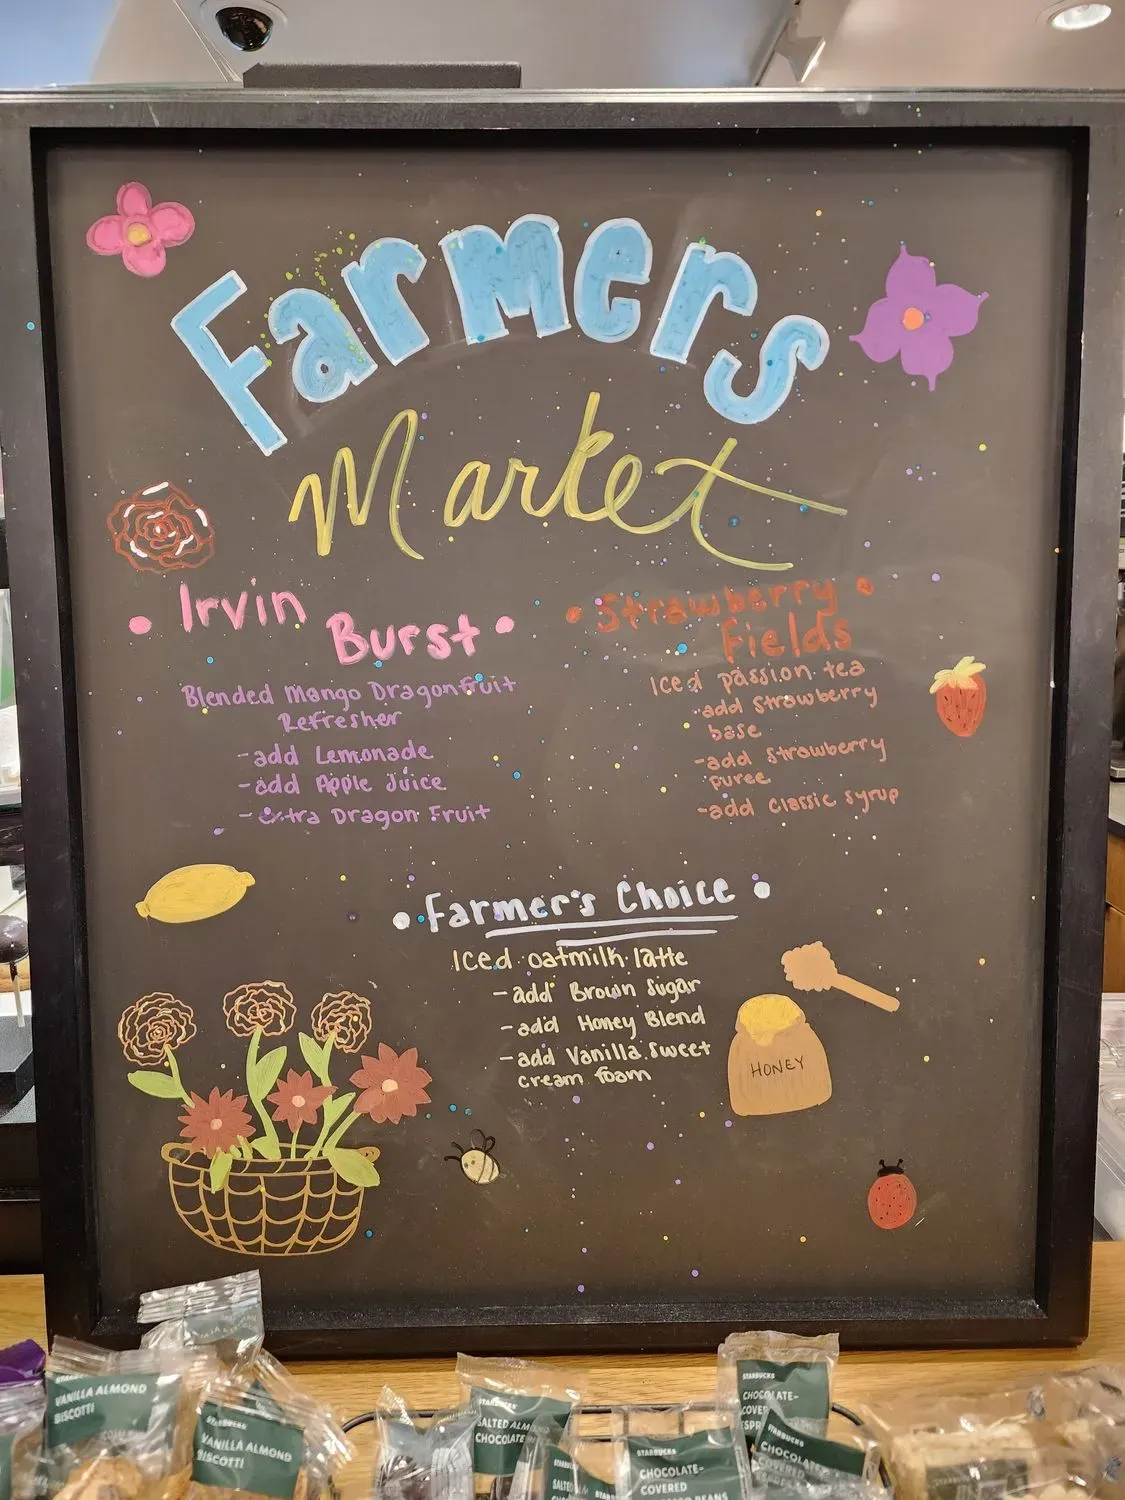 Farmers
Market
• Irvin
Burst •
Blended Mango Dragonfruit
Refresher
-add Lemonade
-add Apple Juice
-extra Dragon Fruit
• Strawberry •
Fields
Iced passion tea
-add strawberry
base
-add strawberry
puree
-add classic syrup
• Farmer's Choice •
Iced oatmilk latte
-add Brown Sugar
-add Honey Blend
-add Vanilla Sweet
cream foam
HONEY
VANILLA ALMOND
BISCOTTI
STARBUCKS
VANILLA ALMOND
BISCOTTI
STARBUCKS
SALTED ALM
CHOCOLATE
SALTED
STARBUCKS
STARBUCKS
CHOCOLATE-
COVERED
ESPRESSO BEANS
STARBUCKS
CHOCOLATE-
COVER
ESPR
STARBUCKS
CHOCOLATE-
COVERED